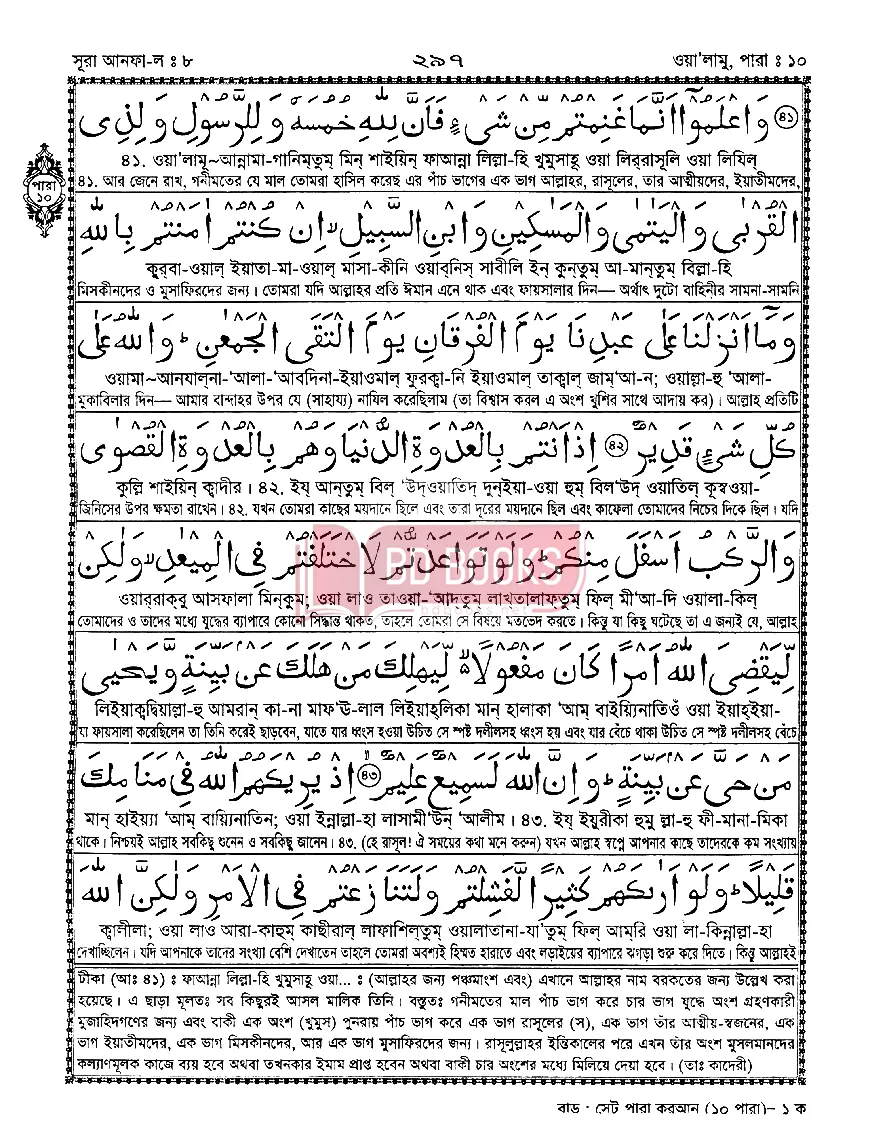 সূরা আনফা-ল ঃ ৮ ২৯৭ ওয়া'লামু, পারা ঃ ১০
পারা ১০
﴿٤١﴾ وَاعْلَمُوا أَنَّمَا غَنِمْتُمْ مِنْ شَيْءٍ فَأَنَّ لِلَّهِ خُمُسَهُ وَلِلرَّسُولِ وَلِذِي
৪১. ওয়া'লামূ~আন্নামা-গানিমতুম্ মিন্ শাইয়িন্ ফাআন্না লিল্লা-হি খুমুসাহূ ওয়া লিররাসূলি ওয়া লিযিল্
৪১. আর জেনে রাখ, গনীমতের যে মাল তোমরা হাসিল করেছ এর পাঁচ ভাগের এক ভাগ আল্লাহর, রাসূলের, তার আত্মীয়দের, ইয়াতীমদের,
الْقُرْبَى وَالْيَتَمَى وَالْمَسَكِينِ وَابْنِ السَّبِيلِ إِنْ كُنْتُمْ امَنْتُمْ بِاللَّهِ
কুরবা-ওয়াল্ ইয়াতা-মা-ওয়াল্ মাসা-কীনি ওয়াব্‌নিস্ সাবীলি ইন্ কুন্‌তুম্ আ-মান্‌তুম্ বিল্লা-হি
মিসকীনদের ও মুসাফিরদের জন্য। তোমরা যদি আল্লাহর প্রতি ঈমান এনে থাক এবং ফায়সালার দিন— অর্থাৎ দুটো বাহিনীর সামনা-সামনি
وَمَا أَنْزَلْنَا عَلَى عَبْدِنَا يَوْمَ الْفُرْقَانِ يَوْمَ الْتَقَى الْجَمْعَنِ وَاللَّهُ عَلَى
ওয়ামা~আনযাল্‌না-'আলা-'আবদিনা-ইয়াওমাল্ ফুরক্বা-নি ইয়াওমাল্ তাক্বাল্ জাম্'আ-ন; ওয়াল্লা-হু 'আলা-
মুকাবিলার দিন— আমার বান্দাহর উপর যে (সাহায্য) নাযিল করেছিলাম (তা বিশ্বাস করল এ অংশ খুশির সাথে আদায় কর)। আল্লাহ প্রতিটি
كُلِّ شَيْءٍ قَدِيرٌ ﴿٤٢﴾ إِذْ أَنْتُمْ بِالْعُدْوَةِ الدُّنْيَا وَهُمْ بِالْعُدْوَةِ الْقُصْوَى
কুল্লি শাইয়িন্ ক্বাদীর। ৪২. ইয্ আন্‌তুম্ বিল 'উদ্ওয়াতিদ্ দুন্‌ইয়া-ওয়া হুম্ বিল'উদ্ ওয়াতিল্ কুস্বওয়া-
জিনিসের উপর ক্ষমতা রাখেন। ৪২. যখন তোমরা কাছের ময়দানে ছিলে এবং তারা দূরের ময়দানে ছিল এবং কাফেলা তোমাদের নিচের দিকে ছিল। যদি
وَالرَّكْبُ أَسْفَلَ مِنْكُمْ وَلَوْ تَوَاعَدْتُمْ لَاخْتَلَفْتُمْ فِي الْمِيعَدِ وَلَكِنْ
ওয়াররাক্‌বু আসফালা মিন্‌কুম; ওয়া লাও তাওয়া-'আদতুম্ লাখতালাফ্‌তুম্ ফিল্ মী'আ-দি ওয়ালা-কিল্
তোমাদের ও তাদের মধ্যে যুদ্ধের ব্যাপারে কোনো সিদ্ধান্ত থাকত, তাহলে তোমরা সে বিষয়ে মতভেদ করতে। কিন্তু যা কিছু ঘটেছে তা এ জন্যই যে, আল্লাহ
لِيَقْضِيَ اللَّهُ أَمْرًا كَانَ مَفْعُولًا لِيَهْلِكَ مَنْ هَلَكَ عَنْ بَيِّنَةٍ وَيَحْيَى
লিইয়াক্বদ্বিয়াল্লা-হু আমরান্ কা-না মাফ'ঊ-লাল লিইয়াহ্‌লিকা মান্ হালাকা 'আম্ বাইয়্যিনাতিওঁ ওয়া ইয়াহ্‌ইয়া-
যা ফায়সালা করেছিলেন তা তিনি করেই ছাড়বেন, যাতে যার ধ্বংস হওয়া উচিত সে স্পষ্ট দলীলসহ ধ্বংস হয় এবং যার বেঁচে থাকা উচিত সে স্পষ্ট দলীলসহ বেঁচে
مَنْ حَيَّ عَنْ بَيِّنَةٍ وَإِنَّ اللَّهَ لَسَمِيعٌ عَلِيمٌ ﴿٤٣﴾ إِذْ يُرِيكَهُمُ اللَّهُ فِي مَنَامِكَ
মান্ হাইয়্যা 'আম্ বায়্যিনাতিন; ওয়া ইন্নাল্লা-হা লাসামী'উন্ 'আলীম। ৪৩. ইয্ ইয়ুরীকা হুমু ল্লা-হু ফী-মানা-মিকা
থাকে। নিশ্চয়ই আল্লাহ সবকিছু শুনেন ও সবকিছু জানেন। ৪৩. (হে রাসূল! ঐ সময়ের কথা মনে করুন) যখন আল্লাহ স্বপ্নে আপনার কাছে তাদেরকে কম সংখ্যায়
قَلِيلًا وَلَوْ أَرَىكَهُمْ كَثِيرًا لَفَشِلْتُمْ وَلَتَنَازَعْتُمْ فِي الْأَمْرِ وَلَكِنَّ اللَّهَ
ক্বালীলা; ওয়া লাও আরা-কাহুম্ কাছীরাল্ লাফাশিল্‌তুম্ ওয়ালাতানা-যা'তুম্ ফিল্ আম্‌রি ওয়া লা-কিন্নাল্লা-হা
দেখাচ্ছিলেন। যদি আপনাকে তাদের সংখ্যা বেশি দেখাতেন তাহলে তোমরা অবশ্যই হিম্মত হারাতে এবং লড়াইয়ের ব্যাপারে ঝগড়া শুরু করে দিতে। কিন্তু আল্লাহই
টীকা (আঃ ৪১) ঃ ফাআন্না লিল্লা-হি খুমুসাহূ ওয়া... ঃ (আল্লাহর জন্য পঞ্চমাংশ এবং) এখানে আল্লাহর নাম বরকতের জন্য উল্লেখ করা
হয়েছে। এ ছাড়া মূলতঃ সব কিছুরই আসল মালিক তিনি। বস্তুতঃ গনীমতের মাল পাঁচ ভাগ করে চার ভাগ যুদ্ধে অংশ গ্রহণকারী
মুজাহিদগণের জন্য এবং বাকী এক অংশ (খুমুস) পুনরায় পাঁচ ভাগ করে এক ভাগ রাসূলের (স), এক ভাগ তাঁর আত্মীয়-স্বজনের, এক
ভাগ ইয়াতীমদের, এক ভাগ মিসকীনদের, আর এক ভাগ মুসাফিরদের জন্য। রাসূলুল্লাহর ইন্তিকালের পরে এখন তাঁর অংশ মুসলমানদের
কল্যাণমূলক কাজে ব্যয় হবে অথবা তখনকার ইমাম প্রাপ্ত হবেন অথবা বাকী চার অংশের মধ্যে মিলিয়ে দেয়া হবে। (তাঃ কাদেরী)
BD BOOKS
বাড · সেট পারা করআন (১০ পারা)– ১ ক